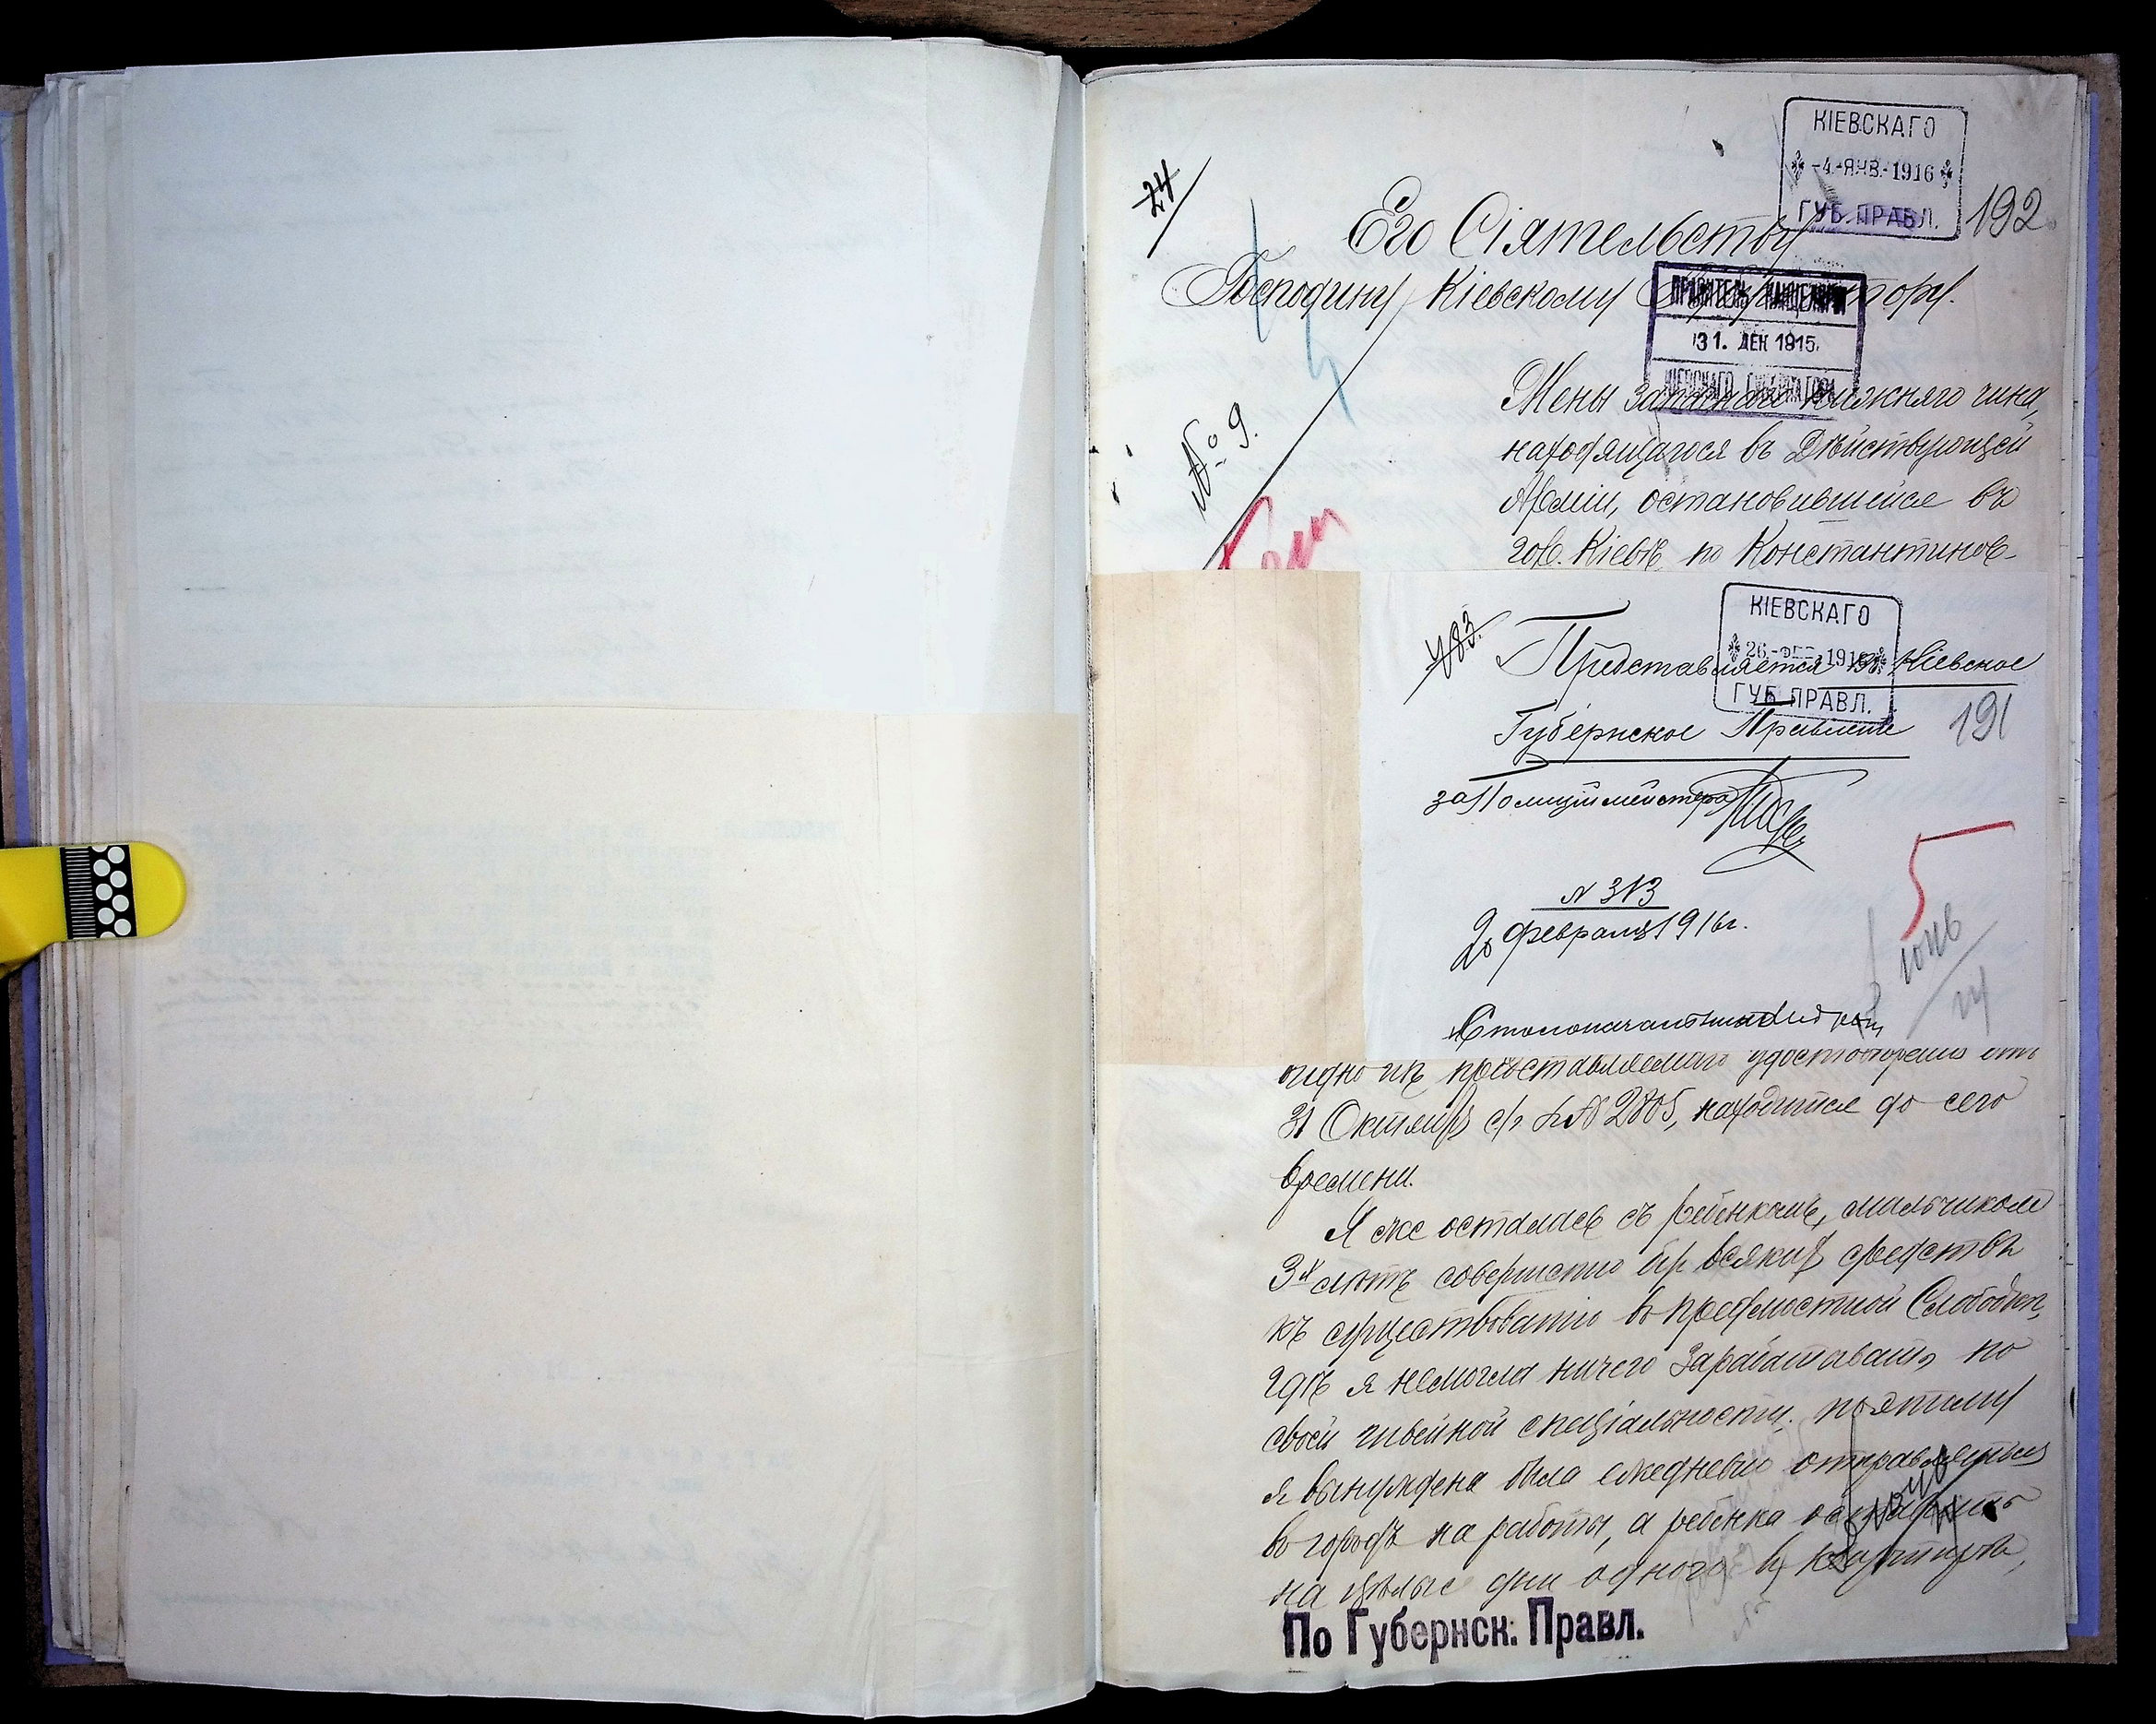 КІЕВСКАГО
-4.-ЯНВ.-1916
ГУБ. ПРАВЛ.
24
192
Его Сіятельству
Господину Кіевскому
ПРАВИТЕЛЬ КАНЦЕЛЯРІИ
31. ДЕК 1915.
КІЕВСКАГО ГУБЕРНАТОРА
Жены запаснаго нижняго чина,
находящагося въ Дѣйствующей
Арміи, остановившейся въ
гор. Кіевѣ, по Константинов-
№ 9.
КІЕВСКАГО
26.-ФЕВ.-1916
ГУБ. ПРАВЛ.
783.
Представляется въ Кіевское
Губернское Правленіе
191
за Полиціймейстера
N 313
20 февраля 1916 г.
5
Столоначальник
видно изъ представляемаго удостовѣренія отъ
31 Октября с/г за № 2805, находится до сего
времени.
Я же осталась съ ребенкомъ, мальчикомъ
3х лѣтъ совершенно безъ всякихъ средствъ
къ существованію въ предмостной Слободкѣ,
гдѣ я немогла ничего заработывать по
своей швейной спеціальности, поэтому
я вынуждена была ежедневно отправляться
въ городъ на работы, а ребенка оставлять
на цѣлые дни одного въ квартирѣ,
По Губернск: Правл.